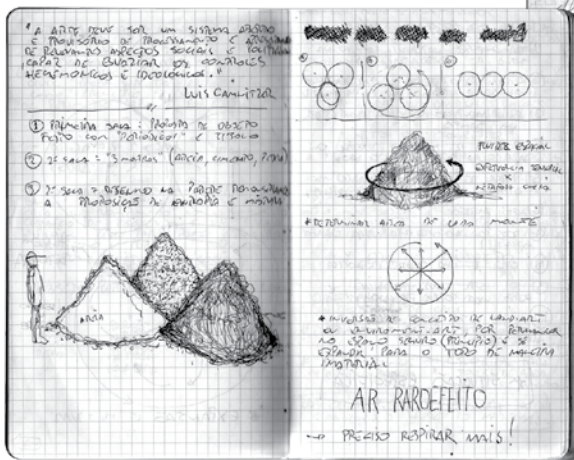 "A ARTE DEVE SER UM SISTEMA ABERTO
E PROVISÓRIO DE PROCESSAMENTO E
DE RELEVANTES ASPECTOS SOCIAIS E
CAPAZ DE ESVAZIAR OS CONTROLES
HEGEMÔNICOS E IDEOLÓGICOS."
LUIS CAMNITZER
① PRIMEIRA SALA: PROPOSTA DE OBJETO
FEITO COM "PERIÓDICOS" E TÍTULO
② 2ª SALA: "3 MONTES" (AREIA, CIMENTO, PEDRA)
③ 2ª SALA = DESENHO NA PAREDE
A PROPOSIÇÃO DE ENTROPIA E
AREIA
ESPACIAL
EXPERIÊNCIA
X
* DETERMINAR ÁREA DE CADA MONTE
* INVERSÃO DE CONCEITO DE LAND-ART
OU ENVIROMENT-ART, POR PERMANECER
NO ESPAÇO (PRINCÍPIO) E SE
EXPANDIR PARA O TODO DE MANEIRA
IMATERIAL
AR RAREFEITO
→ PRECISO RESPIRAR MAIS!